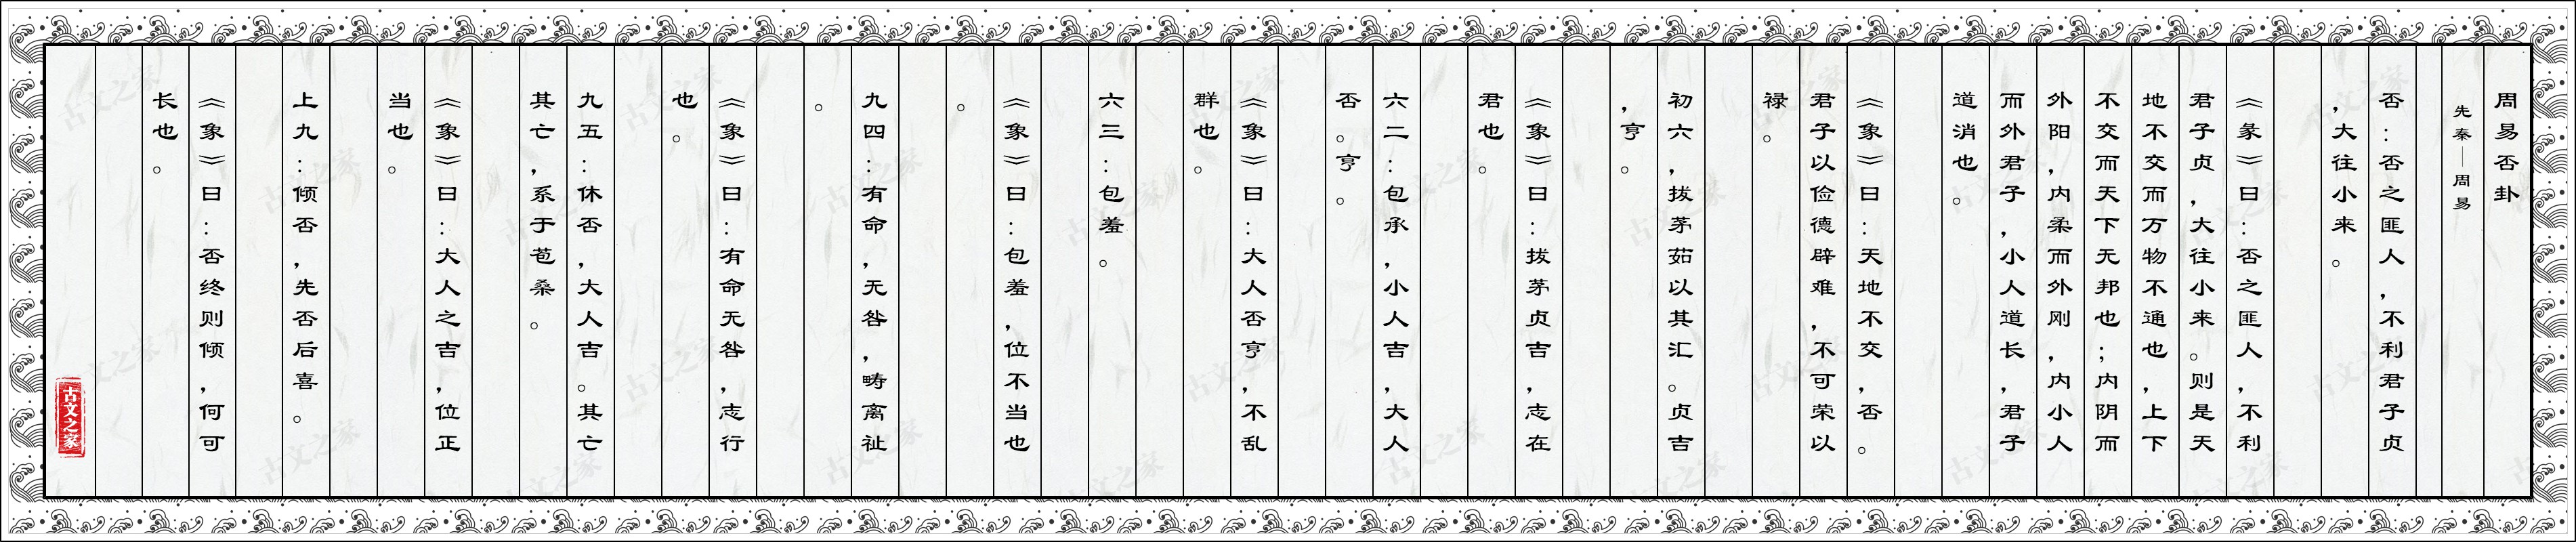 周易否卦
先秦—周易
否：否之匪人，不利君子贞
，大往小来。
《彖》曰：否之匪人，不利
君子贞，大往小来。则是天
地不交而万物不通也，上下
不交而天下无邦也；内阴而
外阳，内柔而外刚，内小人
而外君子，小人道长，君子
道消也。
《象》曰：天地不交，否。
君子以俭德辟难，不可荣以
禄。
初六，拔茅茹以其汇。贞吉
，亨。
《象》曰：拔茅贞吉，志在
君也。
六二：包承，小人吉，大人
否。亨。
《象》曰：大人否亨，不乱
群也。
六三：包羞。
《象》曰：包羞，位不当也
。
九四：有命，无咎，畴离祉
。
《象》曰：有命无咎，志行
也。
九五：休否，大人吉。其亡
其亡，系于苞桑。
《象》曰：大人之吉，位正
当也。
上九：倾否，先否后喜。
《象》曰：否终则倾，何可
长也。
古文之家